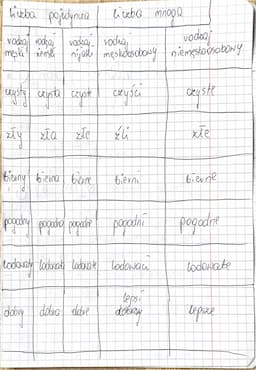 liczba pojedyncza liczba mnoga
rodzaj męski rodzaj żeński rodzaj nijaki rodzaj męskoosobowy rodzaj niemęskoosobowy
czysty czysta czyste czyści czyste
zły zła złe źli złe
bierny bierna bierne bierni bierne
pogodny pogodna pogodne pogodni pogodne
lodowaty lodowata lodowate lodowaci lodowate
lepsi
dobry dobra dobre dobrzy lepsze